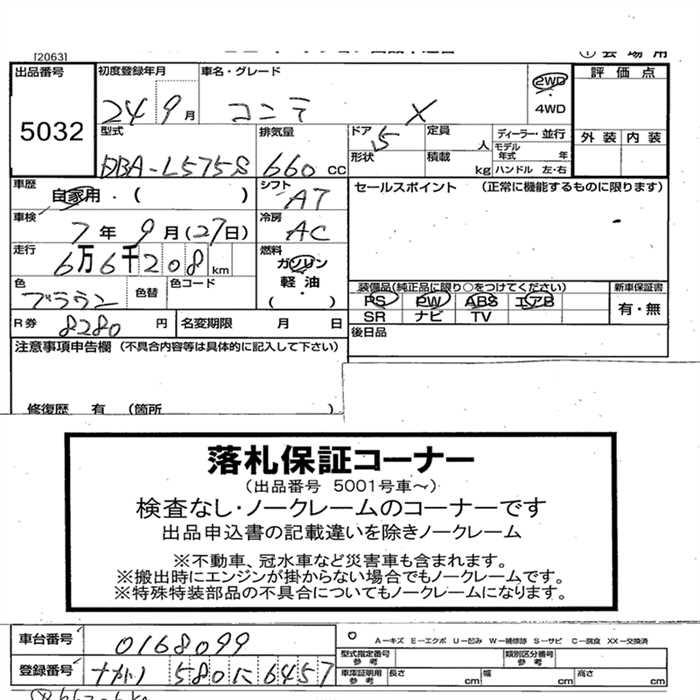 [2063]
① 会 場 用
出品番号
5032
初度登録年月
24 9 月
車名・グレード
コンテ X
2WD
4WD
評価点
外装 内装
型式
DBA-L575S
排気量
660 cc
ドア 5
定員 人
ディーラー・並行
形状
積載 kg
モデル年式 年
ハンドル 左・右
車歴
自家用・( )
シフト
AT
セールスポイント (正常に機能するものに限ります)
車検
7 年 9 月 (27日)
冷房
AC
走行
6万6千208 km
燃料
ガソリン
軽油
( )
色
ブラウン
色替
色コード
装備品(純正品に限り○をつけてください)
PS PW ABS エアB
SR ナビ TV
新車保証書
有・無
R券
8280 円
名変期限 月 日
後日品
注意事項申告欄 (不具合内容等は具体的に記入して下さい)
修復歴 有 (箇所 )
落札保証コーナー
(出品番号 5001号車~)
検査なし・ノークレームのコーナーです
出品申込書の記載違いを除きノークレーム
※不動車、冠水車など災害車も含まれます。
※搬出時にエンジンが掛からない場合でもノークレームです。
※特殊特装部品の不具合についてもノークレームになります。
車台番号
0168099
A-キズ E-エクボ U-凹み W-補修跡 S-サビ C-腐食 XX-交換済
型式指定番号 参考
類別区分番号 参考
登録番号
580 に 6457
車庫証明用 参考
長さ cm
幅 cm
高さ cm